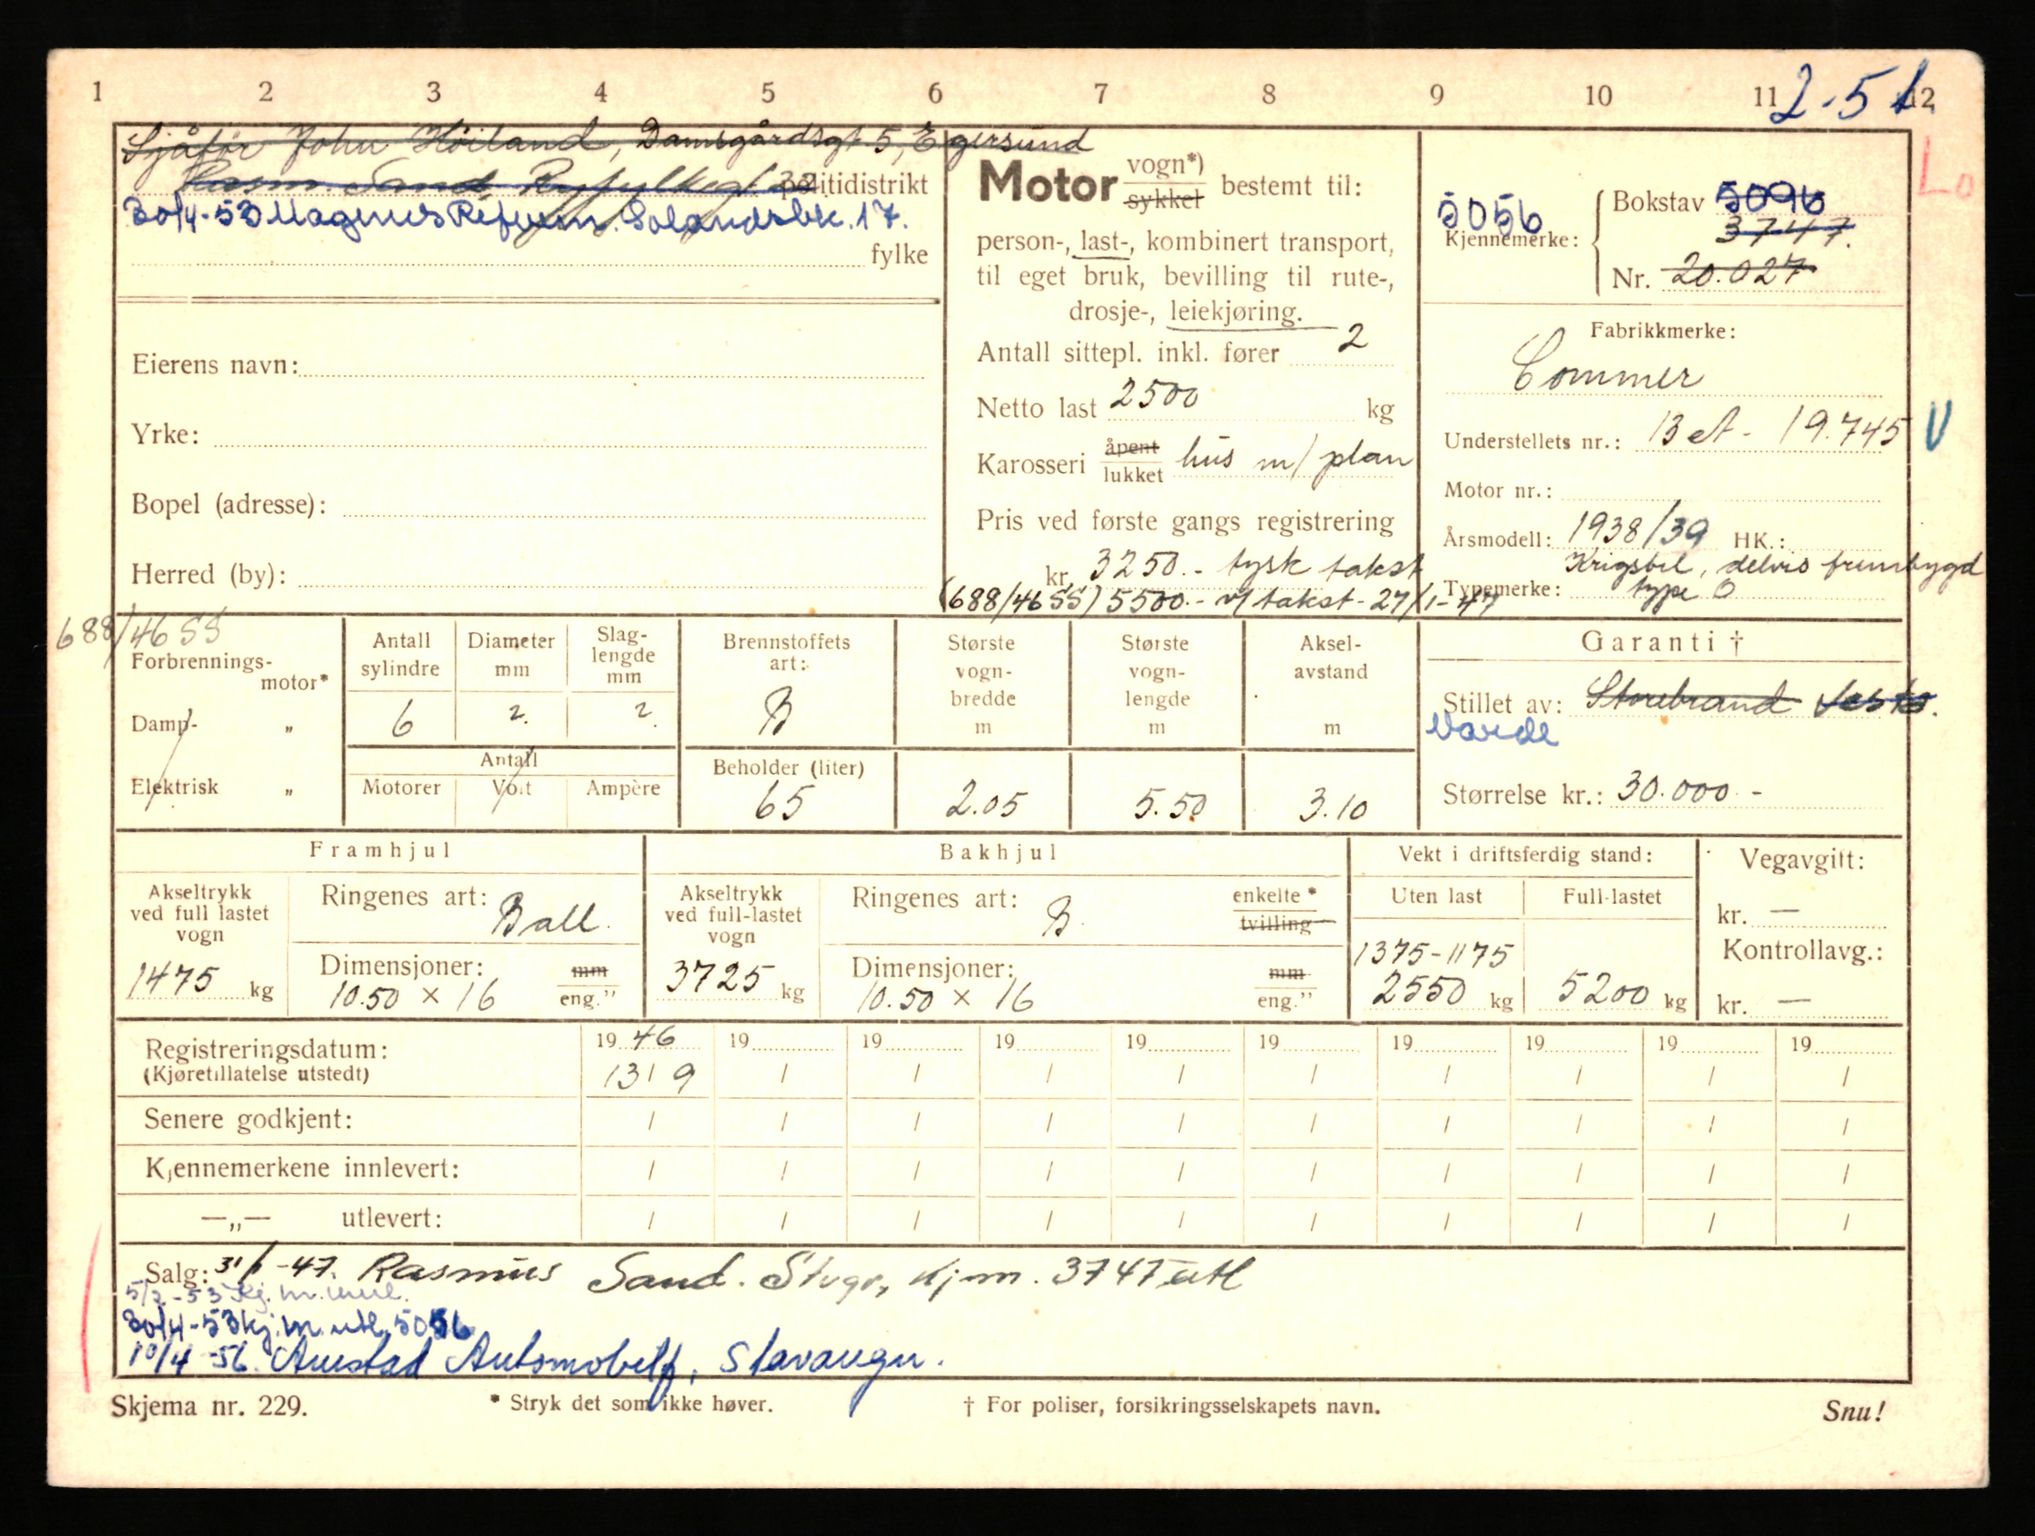 1 2 3 4 5 6 7 8 9 10 11 12
2-51
Sjåfør John Höiland, Damsgårdsgt 5, Egersund
Rasm. Sand Ryfylkegt 32 politidistrikt
30/4-53 Magnus Refvem. Solandsbk. 17.
fylke
Eierens navn:
Yrke:
Bopel (adresse):
Herred (by):
Motor vogn*) sykkel bestemt til:
person-, last-, kombinert transport,
til eget bruk, bevilling til rute-,
drosje-, leiekjøring.
Antall sittepl. inkl. fører 2
Netto last 2500 kg
Karosseri åpent lukket hus m/ plan
Pris ved første gangs registrering
kr. 3250.- tysk takst
(688/46 SS) 5500.- v/ takst - 27/1-47
5056
Kjennemerke: Bokstav 5096
3747.
Nr. 20.027
Lo
Fabrikkmerke:
Commer
Understellets nr.: 13 A - 19.745 V
Motor nr.:
Årsmodell: 1938/39 HK.:
Krigsbil, delvis frembygd
Typemerke: type O
688/46 SS
Forbrennings-
motor*
Damp- „
Elektrisk „
Antall sylindre
6
Diameter mm
2.
Slag-
lengde
mm
2.
Antall
Motorer Volt Ampère
Brennstoffets
art:
B
Beholder (liter)
65
Største
vogn-
bredde
m
2.05
Største
vogn-
lengde
m
5.50
Aksel-
avstand
m
3.10
Garanti †
Stillet av: Storebrand
Varde
Størrelse kr.: 30.000 -
Framhjul
Akseltrykk
ved full lastet
vogn
1475 kg
Ringenes art: Ball.
Dimensjoner: mm
10.50 × 16 eng."
Bakhjul
Akseltrykk
ved full-lastet
vogn
3725 kg
Ringenes art: B. enkelte* tvilling
Dimensjoner: mm
10.50 × 16 eng."
Vekt i driftsferdig stand:
Uten last Full-lastet
1375-1175
2550 kg 5200 kg
Vegavgift:
kr. —
Kontrollavg.:
kr. —
Registreringsdatum: 19 46 19 19 19 19 19 19 19 19 19
(Kjøretillatelse utstedt) 13/9 / / / / / / / / /
Senere godkjent: / / / / / / / / / /
Kjennemerkene innlevert: / / / / / / / / / /
—„— utlevert: / / / / / / / / / /
Salg: 31/1-47. Rasmus Sand. Stvgr, kjm. 3747 utl
5/2-53 Kj.m. innl.
30/4-53 kj.m. utl. 5056
10/4-56. Austad Automobilf, Stavanger.
Skjema nr. 229. * Stryk det som ikke høver. † For poliser, forsikringsselskapets navn. Snu!